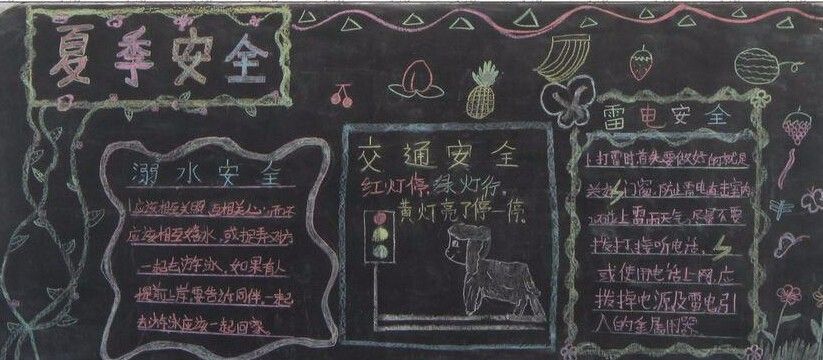 夏季安全
溺水安全
应该相互关照,互相关心,而不
应该相互 水,或捉弄对方
一起去游泳,如果有人
提前上岸,要告诉同伴,一起
去游泳应该一起回家。
交通安全
红灯停,绿灯行,
黄灯亮了停一停。
雷电安全
1.打雷时首先要做好的就是
关好门窗,防止雷电直击室内
2.在打雷雨天气,尽量不要
拨打、接听电话,
或使用电话上网,应
拔掉电源及雷电引
入的金属用器